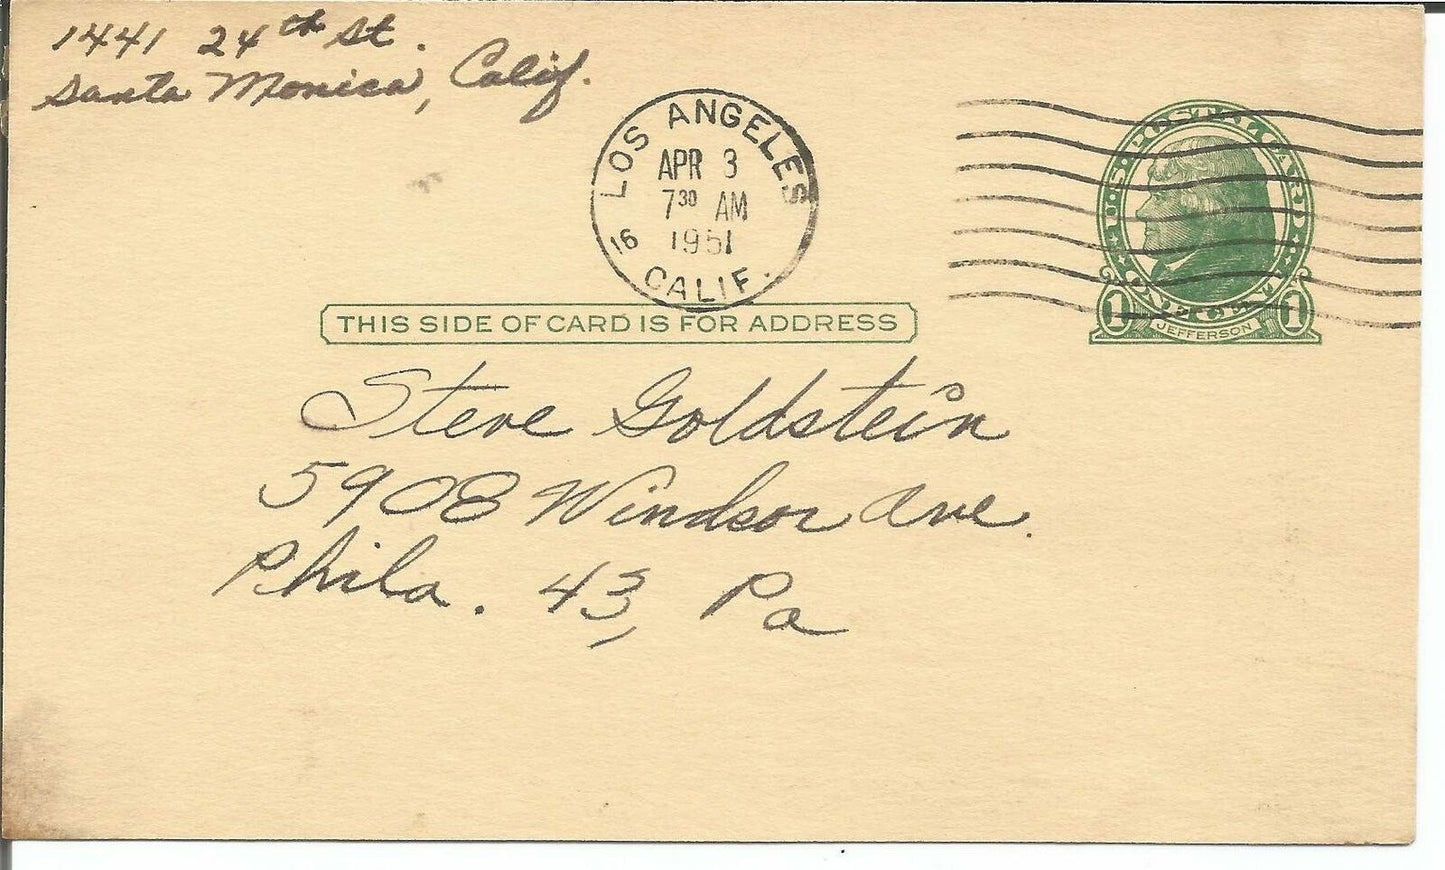 1441 24th St.
Santa Monica, Calif.
LOS ANGELES
APR 3
7 30 AM
1951
16 CALIF.
U.S. POSTAL CARD
1 1
JEFFERSON
THIS SIDE OF CARD IS FOR ADDRESS
Steve Goldstein
5908 Windsor Ave.
Phila. 43, Pa